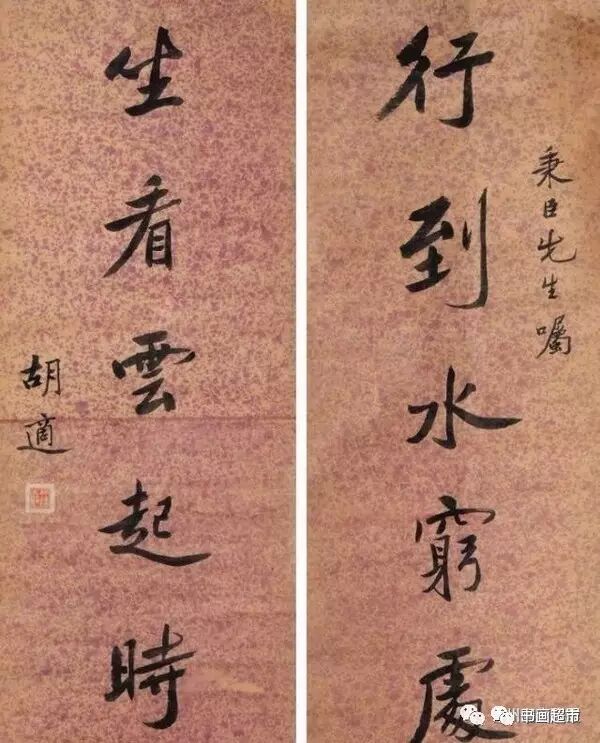 行到水窮處
秉臣先生囑
坐看雲起時
胡適
州书画超市